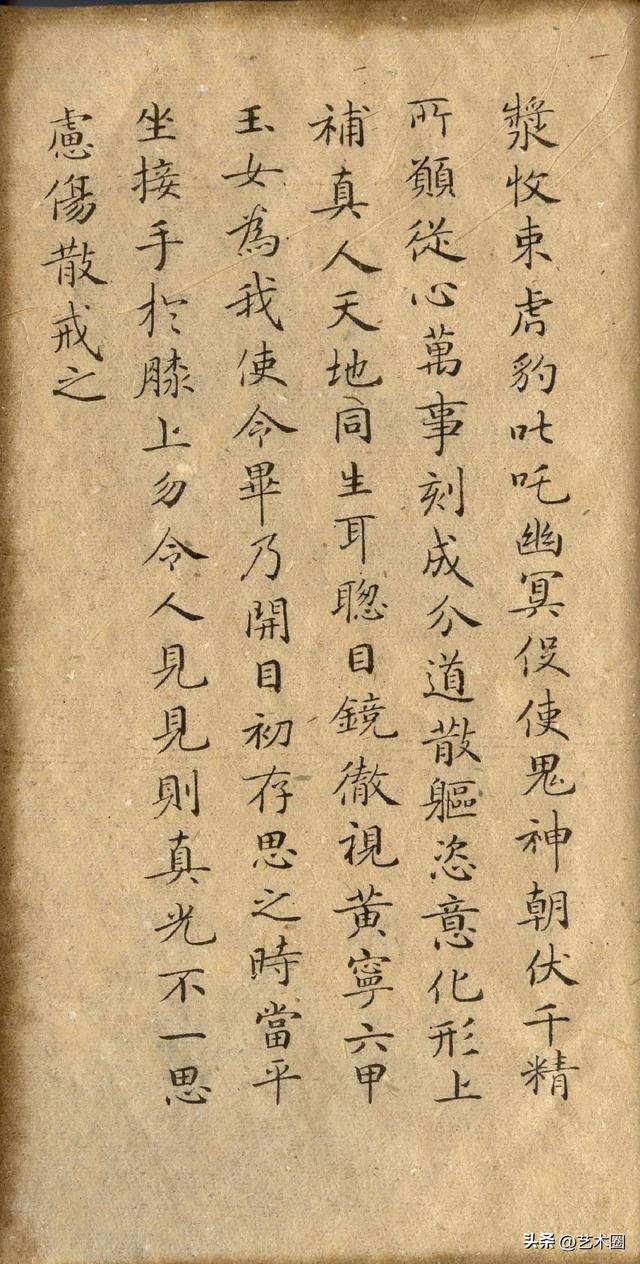 漿收束虎豹叱吒幽冥役使鬼神朝伏千精
所願從心萬事剋成分道散軀恣意化形上
補真人天地同生耳聰目鏡徹視黃寧六甲
玉女為我使令畢乃開目初存思之時當平
坐接手於膝上勿令人見見則真光不一思
慮傷散戒之
头条 @艺术圈